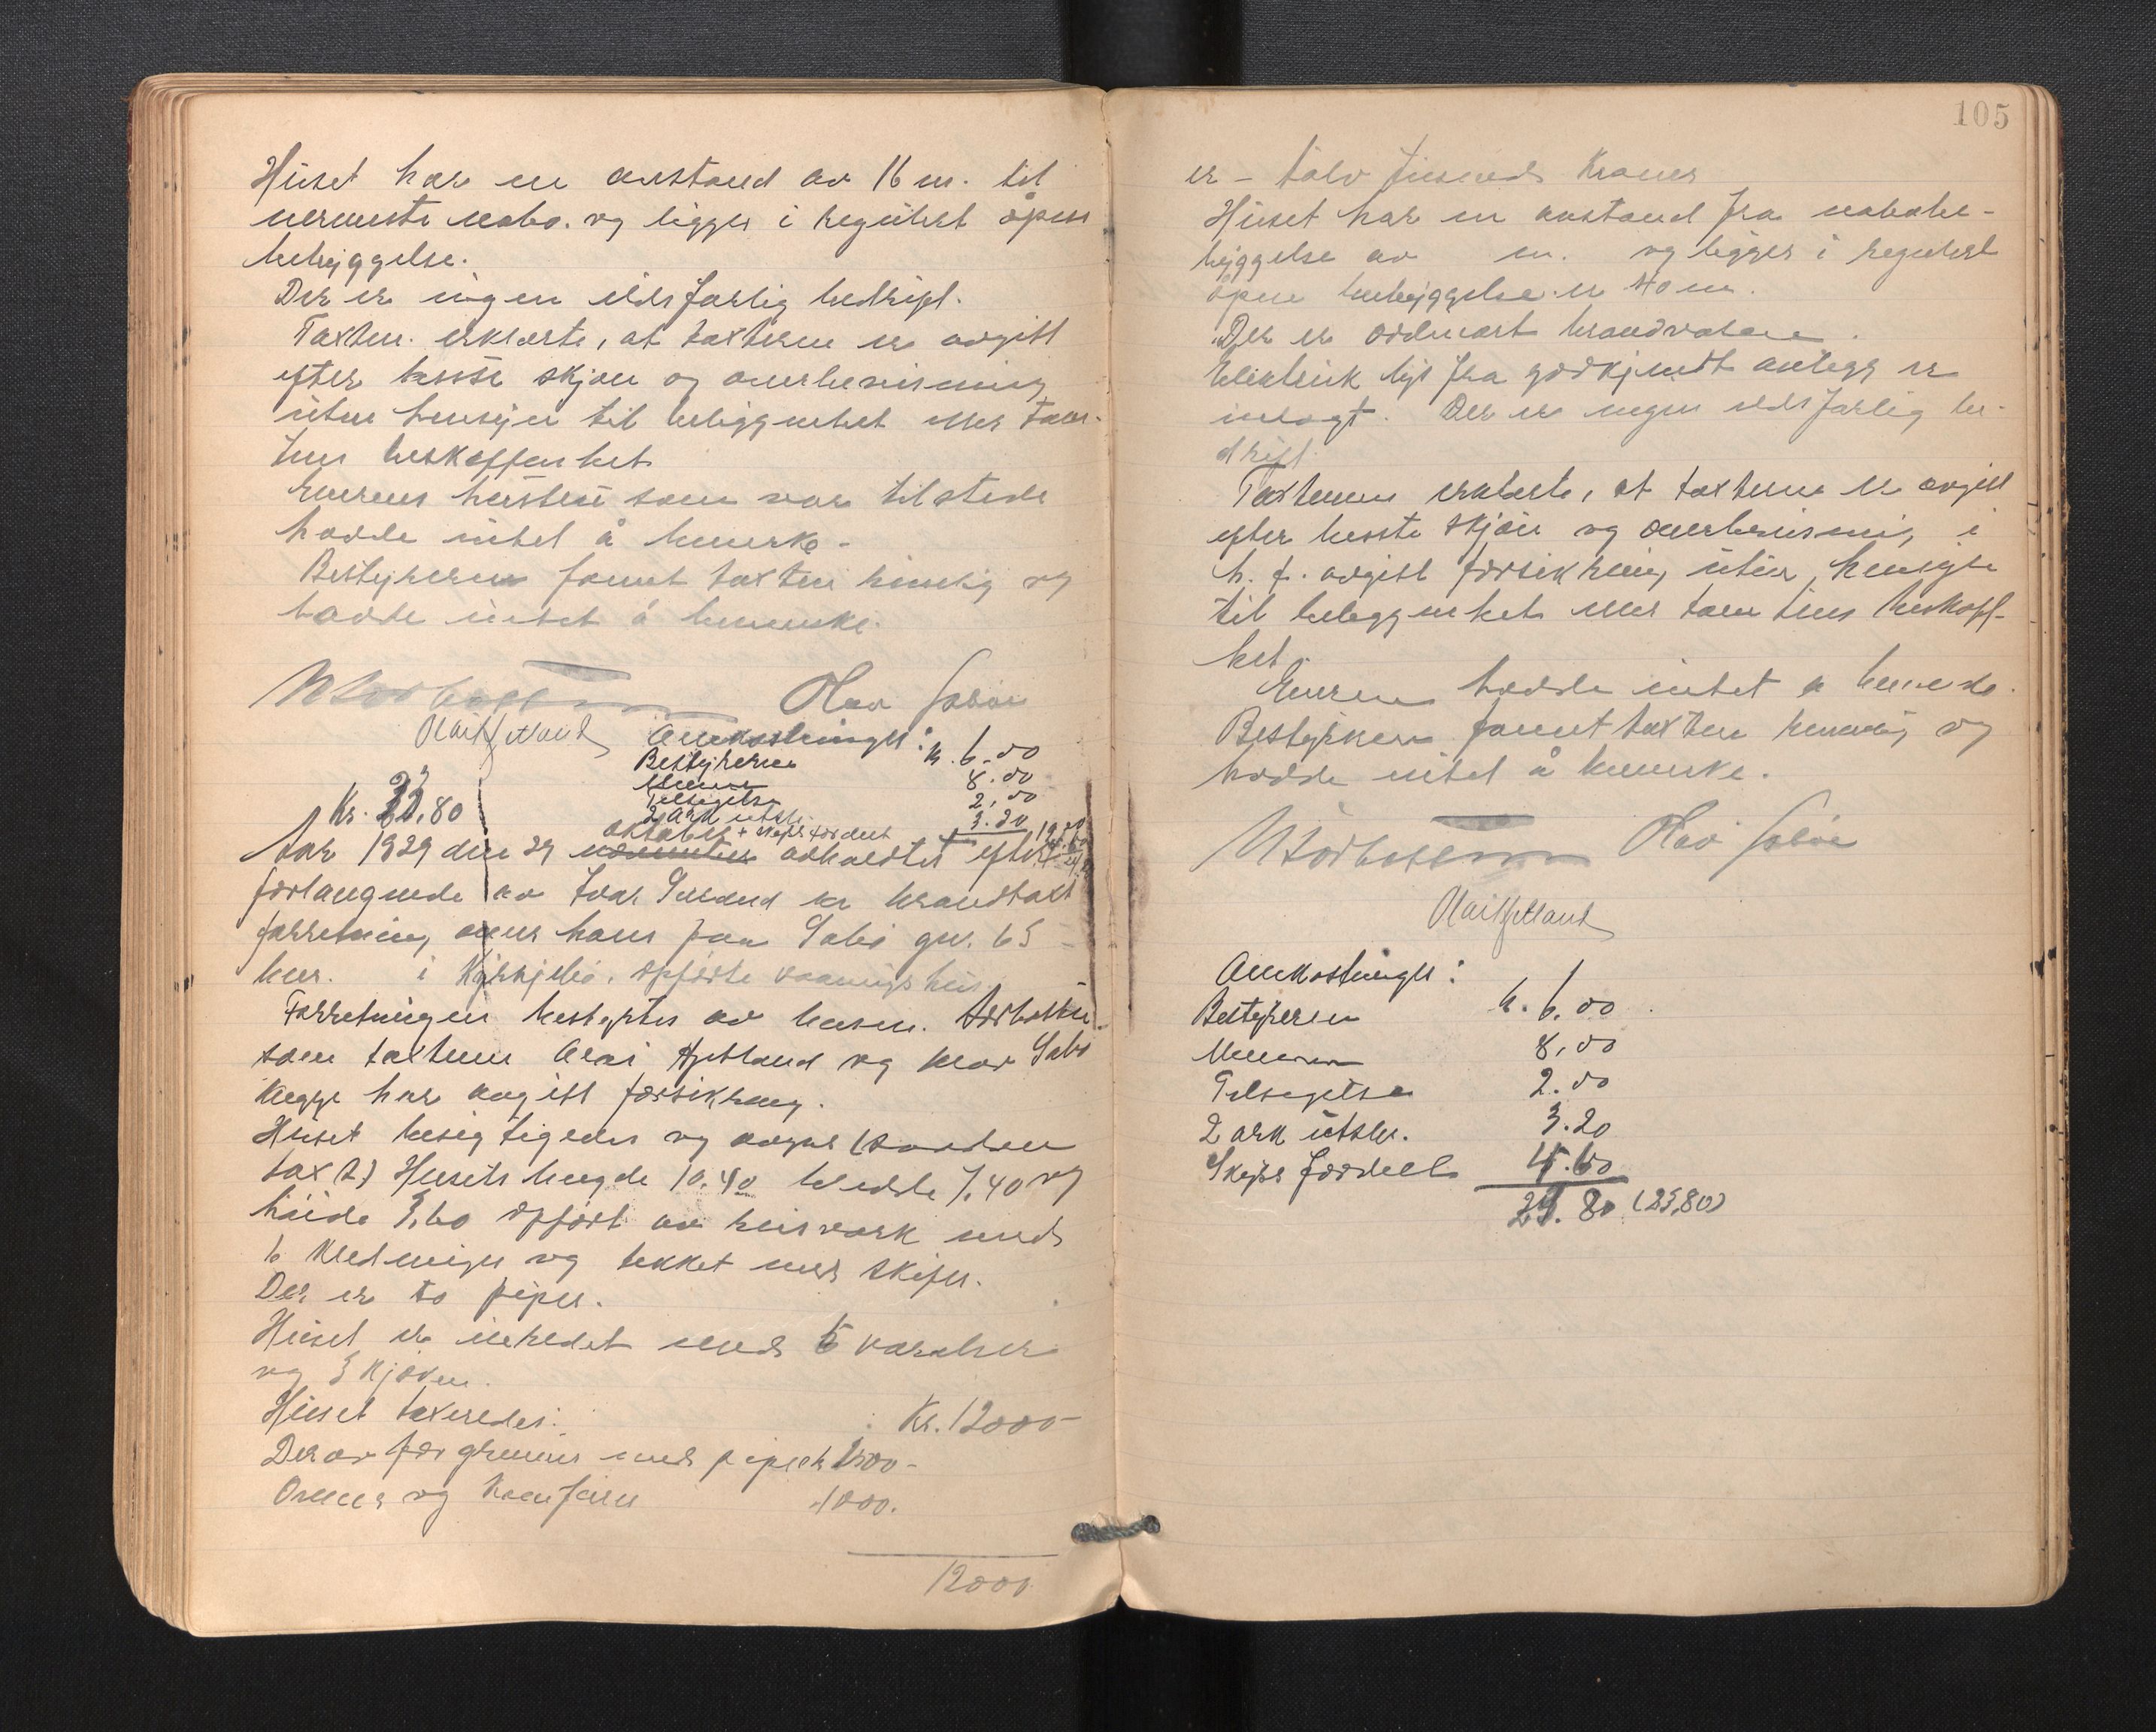 Huset har en avstand av 16 m. til
nermeste nabo. og ligger i regulert åpen
bebyggelse.
Der er ingen ildsfarlig bedrift.
Taxtm. erklærte, at taxterne er avgitt
efter beste skjøn og overbevisning
uten hensyn til beliggenhet eller tom-
tens beskaffenhet
Eierens hustru som var tilstede
hadde intet å bemerke.
Bestyreren fannt taxten rimelig og
hadde intet å bemerke.
Olav Sabøe
Omkostninger:
Bestyreren kr. 6.00
Mennene 8.00
Tilsigelse 2.00
2 ark utskr. 3.20
Kr. 23.80
oktober + skyss fordelt
Aar 1929 den 29 november avholdtes efter
forlangende av Ivar en brandtaxt
forretning over hans paa Sabø gnr. 65
bnr. i opførte vaaningshus.
Forretningen bestyrtes av lensm.
som taxtmenn Hjetland og Olav Sabø
Begge har avgitt forsikring.
Huset besigtigedes og avgav saadan
taxt) Husets lengde 10.40 bredde 7.40 og
høide 3,60 opført av reisverk med
6 kledninger og tekket med skifer.
Der er to piper.
Huset er inredet med 5 værelser
og 3 kjøken.
Huset taxeredes: Kr. 12000-
Derav for grunmur med piper kr 1500-
Ovner og komfurer 1000.
12000
105
er - tolv tusinds Kroner
Huset har en avstand fra nabobe-
byggelse av m. og ligger i regulert
åpen bebyggelse. er 40 m.
Der er ordinært brandvæsen.
Elektrisk lys fra godkjendt anlegg er
inlagt. Der er ingen ildsfarlig be-
drift.
Taxtmenn erklærte, at taxterne er avgitt
efter beste skjøn og overbevisning i
h. t. avgitt forsikring uten hensyn
til beliggenhet eller tomtens beskaff-
het.
Eieren hadde intet å bemerke.
Bestyreren fannt taxten rimelig og
hadde intet å bemerke.
Olav Sabøe
Omkostninger:
Bestyreren kr. 6.00
Mennene 8,00
Tilsigelse 2.00
2 ark utskr. 3.20
Skyss fordelt 4.60
24.80 (23,80)